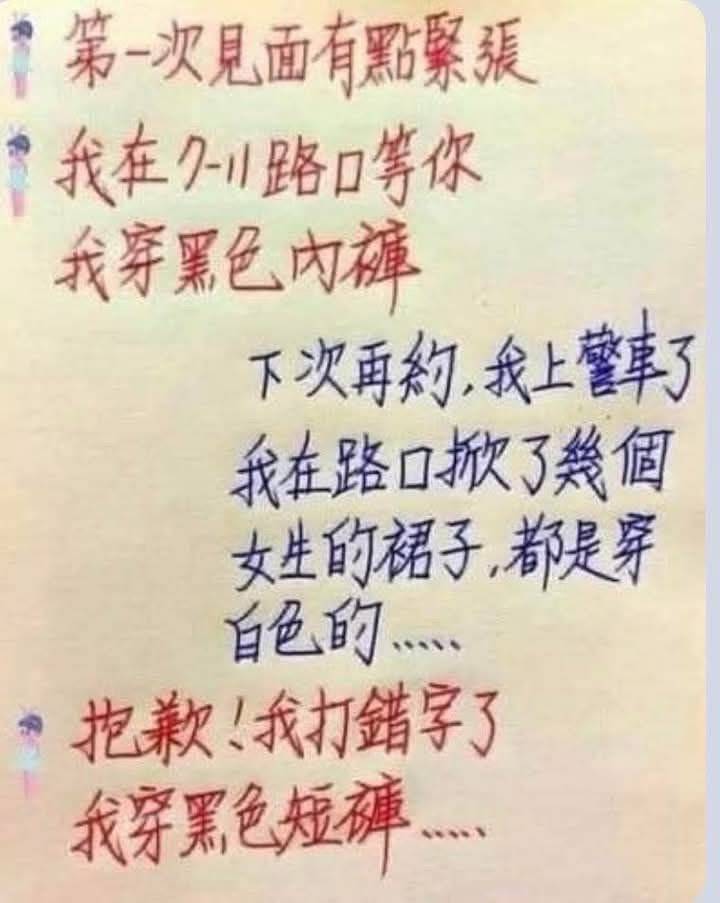 第一次見面有點緊張
我在7-11路口等你
我穿黑色內褲
下次再約,我上警車了
我在路口掀了幾個
女生的裙子,都是穿
白色的.....
抱歉!我打錯字了
我穿黑色短褲.....